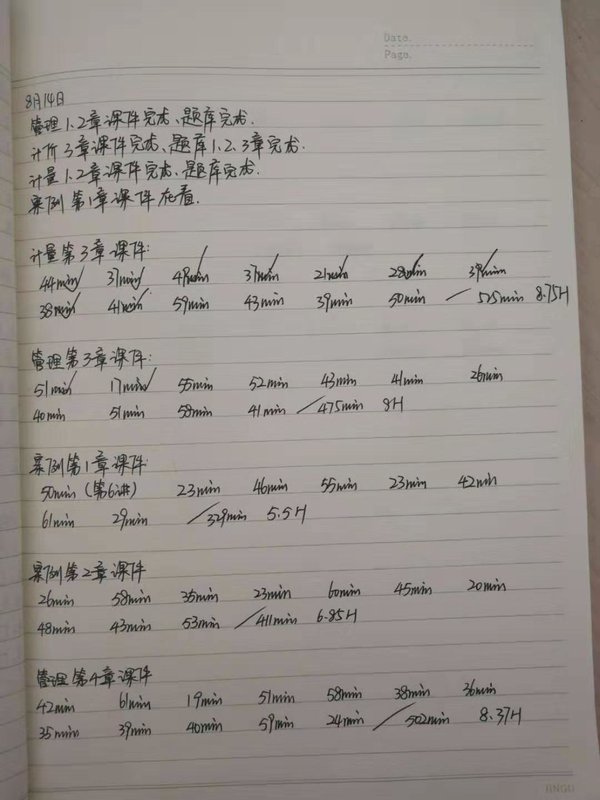 Date.
Page.
8月14日
管理1.2章课件完成、题库完成.
计价3章课件完成、题库1.2.3章完成.
计量1.2章课件完成、题库完成.
案例第1章课件在看.
计量第3章课件:
44min 37min 49min 37min 21min 28min 39min
38min 41min 59min 43min 39min 50min / 525min 8.75H
管理第3章课件:
51min 17min 55min 52min 43min 41min 26min
40min 51min 58min 41min / 475min 8H
案例第1章课件:
50min (第6讲) 23min 46min 55min 23min 42min
61min 29min / 329min 5.5H
案例第2章课件
26min 58min 35min 23min 60min 45min 20min
48min 43min 53min / 411min 6.85H
管理第4章课件
42min 61min 19min 51min 58min 38min 36min
35min 39min 40min 59min 24min / 502min 8.37H